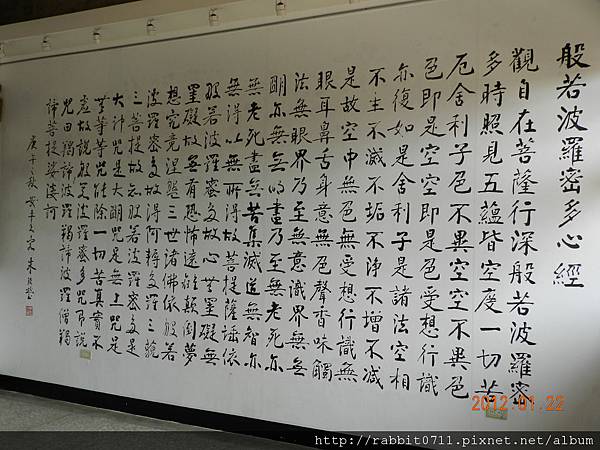 般若波羅密多心經
觀自在菩薩行深般若波羅密
多時照見五蘊皆空度一切苦
厄舍利子色不異空空不異色
色即是空空即是色受想行識
亦復如是舍利子是諸法空相
不生不滅不垢不淨不增不減
是故空中無色無受想行識無
眼耳鼻舌身意無色聲香味觸
法無眼界乃至無意識界無無
明亦無無明盡乃至無老死亦
無老死盡無苦集滅道無智亦
無得以無所得故菩提薩埵依
般若波羅密多故心無罣礙無
罣礙故無有恐怖遠離顛倒夢
想究竟涅槃三世諸佛依般若
波羅密多故得阿耨多羅三藐
三菩提故知般若波羅密多是
大神咒是大明咒是無上咒是
無等等咒能除一切苦真實不
虛故說般若波羅密多咒即說
咒曰揭諦波羅揭諦波羅僧揭
諦菩提娑婆訶
2012.01.22
http://rabbit0711.pixnet.net/album